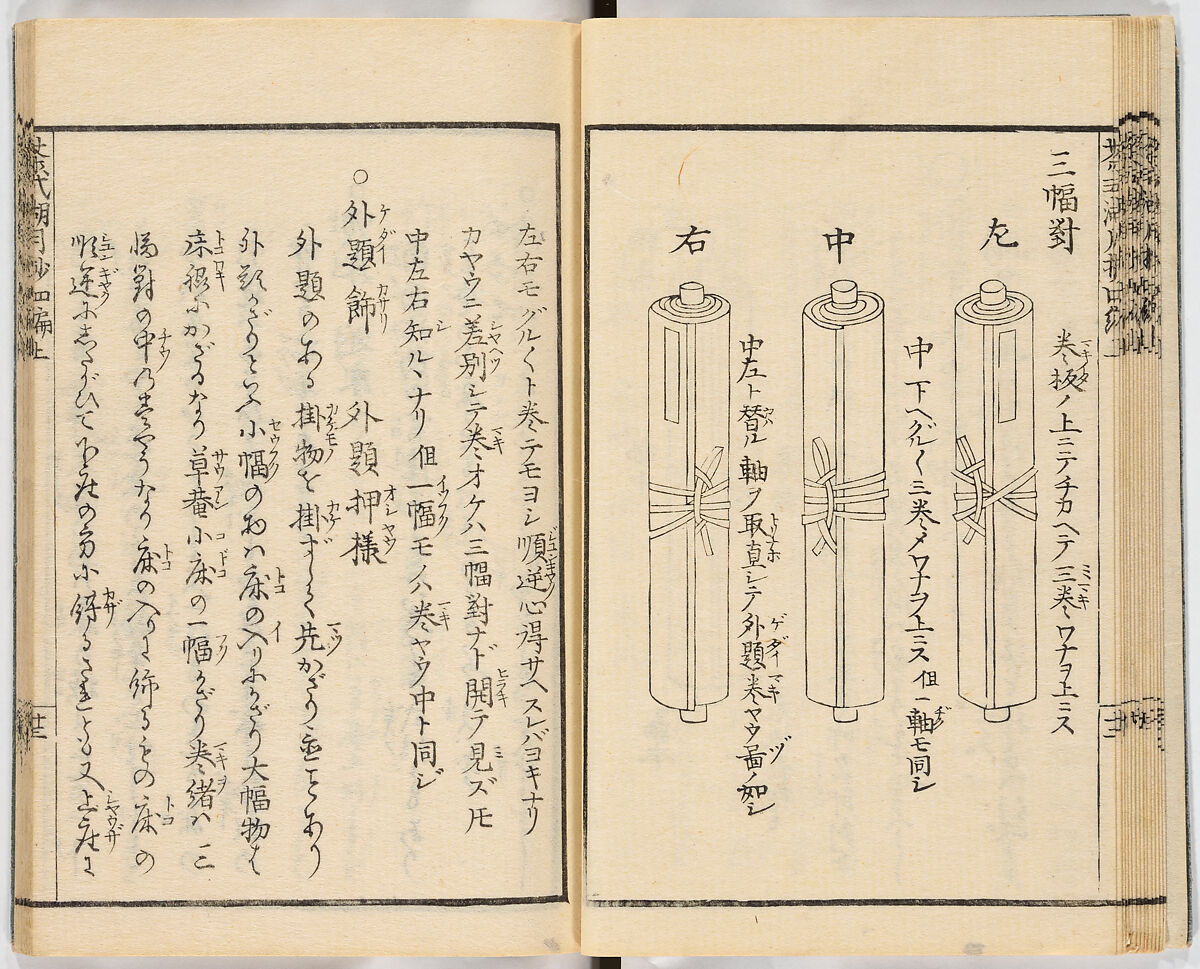 三幅對
左
巻板ノ上ニテチカヘテ三巻ワナヲ上ニス
中
中下ヘグル〱三巻メワナヲ上ニス但一軸モ同シ
右
中左ト替ル軸ヲ取直シテ外題巻ヤウ畾ノ如シ
左右モグル〱ト巻テモヨシ順逆心得サヘスレバヨキナリ
カヤウニ差別シテ巻オケハ三幅對ナド開テ見ズ𪜈
中左右知ルヽナリ但一幅モノハ巻ヤウ中ト同ジ
○外題飾 外題押様
外題のある掛物を掛ずしく先かざり置ことあり
外題かざりといふ小幅のおハ床の入りにかざり大幅物は
床脇にかざるなり草菴小床の一幅かざり巻緒ハ三
幅對の中の巻やうなり床の入りに飾るときの床の
順逆にしたがひて下座の方に餝るされとも又上座に
茶家代 四編上
廿三